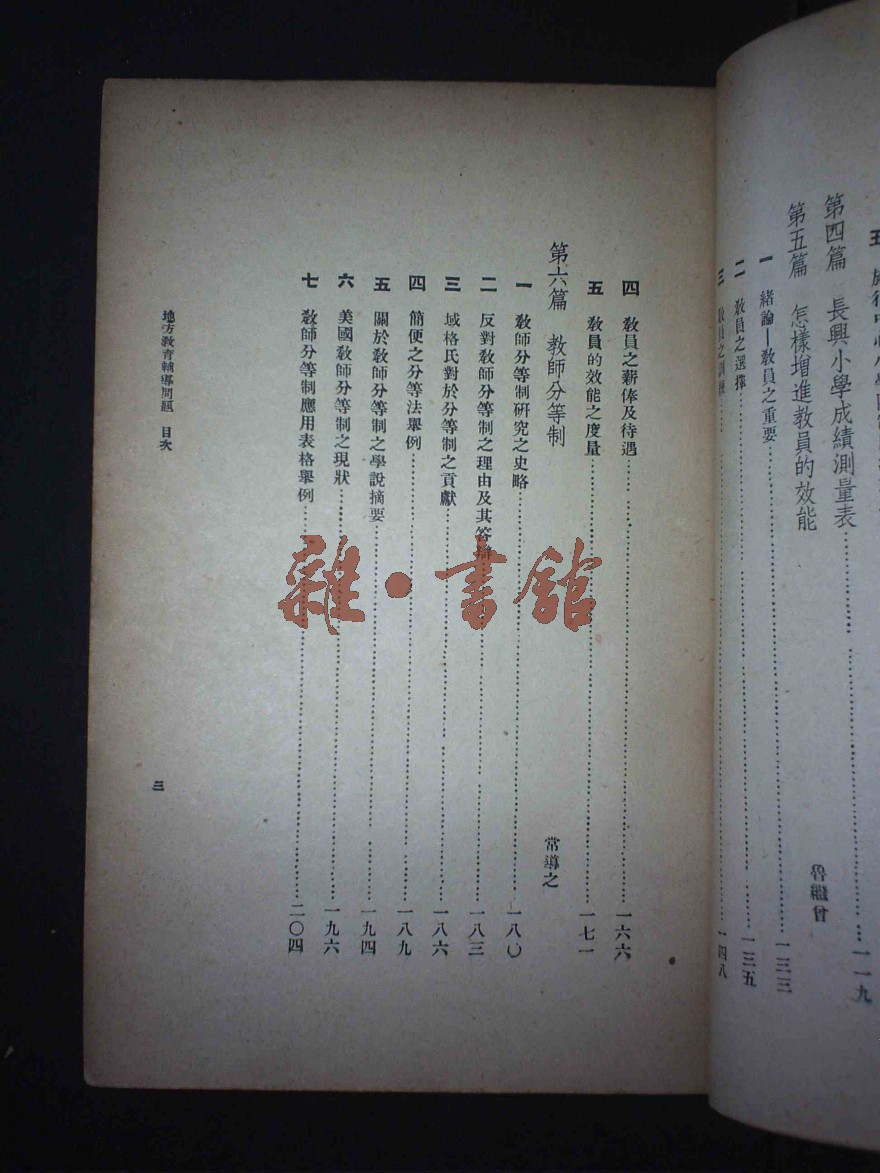 第四篇　長興小學成績測量表……一一九
第五篇　怎樣增進教員的效能　魯繼曾
一　緒論—教員之重要……一三三
二　教員之選擇……一三五
三　教員之訓練……一四八
四　教員之薪俸及待遇……一六六
五　教員的效能之度量……一七一
第六篇　教師分等制　常導之
一　教師分等制研究之史略……一八〇
二　反對教師分等制之理由及其答辯……一八三
三　域格氏對於分等制之貢獻……一八六
四　簡便之分等法舉例……一八九
五　關於教師分等制之學說摘要……一九四
六　美國教師分等制之現狀……一九六
七　教師分等制應用表格舉例……二〇四
地方教育輔導問題　目次
三
雜·書館